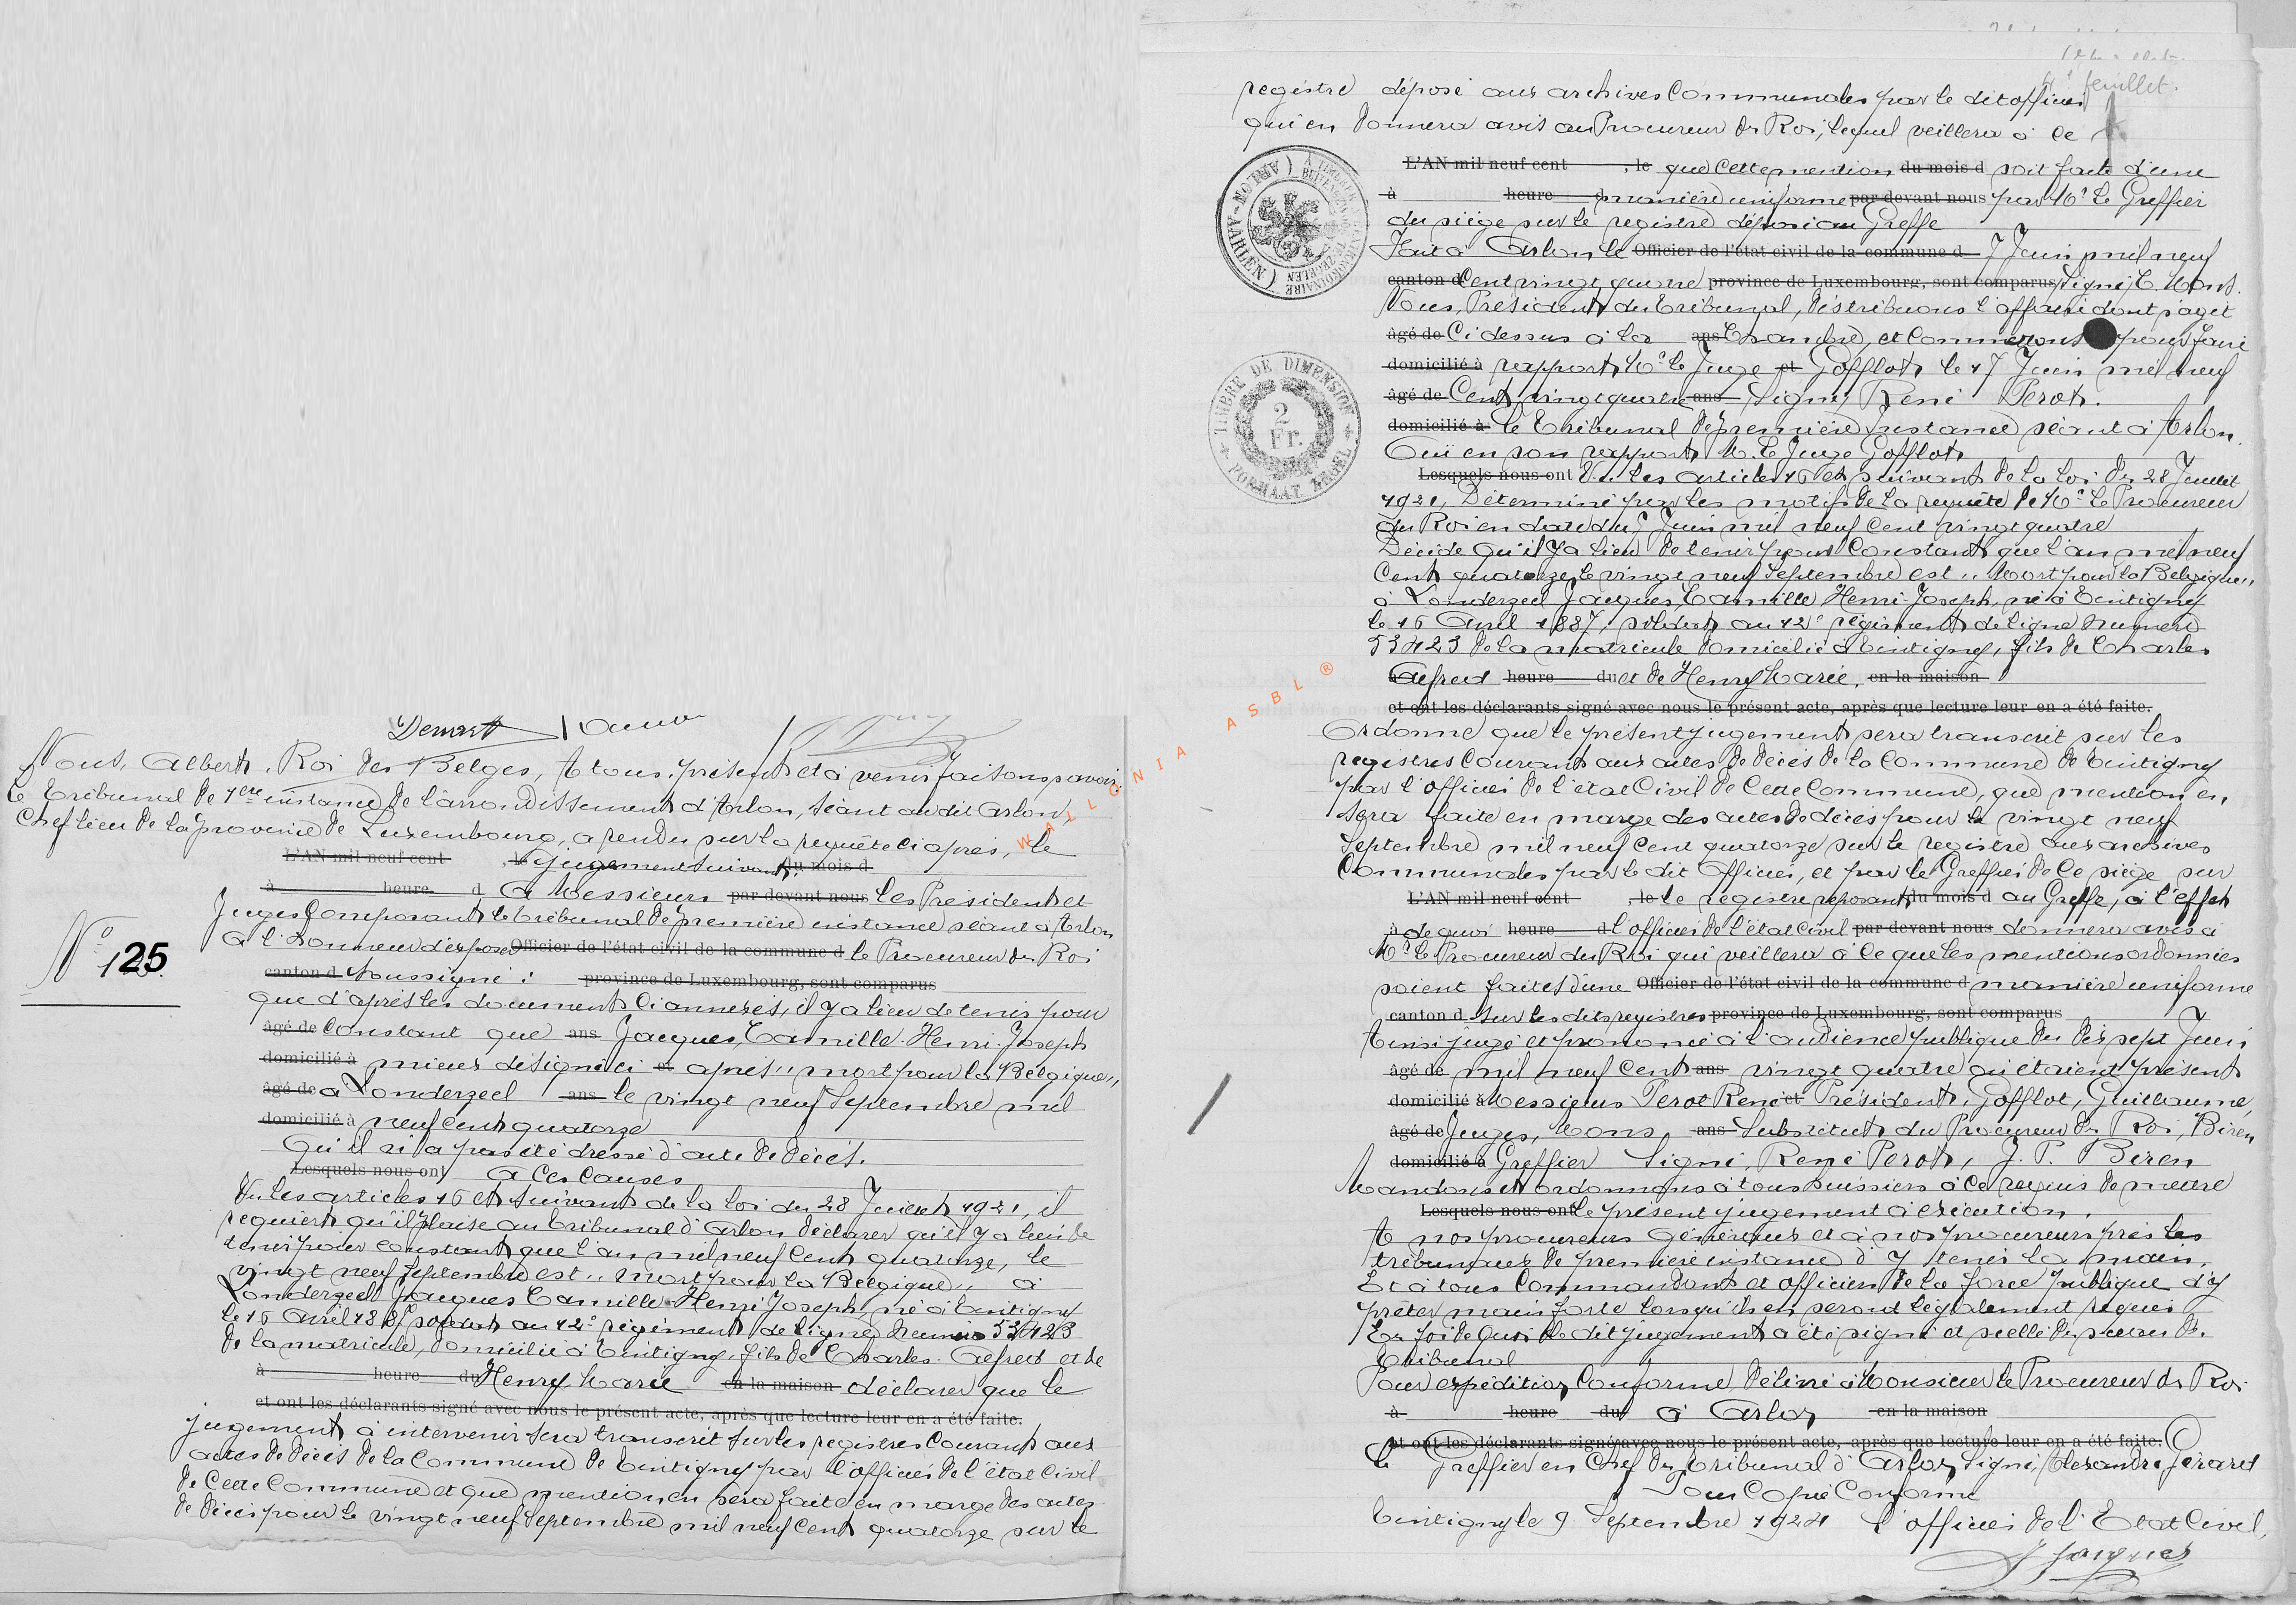 Nous, Albert, Roi des Belges, A tous, présents et à venir faisons savoir:
Le Tribunal de 1ère instance de l'arrondissement d'Arlon, séant au dit Arlon,
Chef lieu de la province de Luxembourg, a rendu sur la requête ci après, le
L'AN mil neuf cent , le jugement suivant: du mois d
à heure d A Messieurs par devant nous les Président et
Juges Composant le tribunal de première instance séant à Arlon
N° 125
A l'honneur d'exposer Officier de l'état civil de la commune d le Procureur du Roi
canton d soussigné : province de Luxembourg, sont comparus
que d'après les documents ci annexés, il y a lieu de tenir pour
âgé de constant que ans Jacques, Camille Henri Joseph
domicilié à mieux désigné ci et après " mort pour la Belgique "
âgé de à Londerzeel ans le vingt neuf Septembre mil
domicilié à neuf cent quatorze
Qu'il n'a pas été dressé d'acte de décès.
Lesquels nous ont A ces causes
Vu les articles 16 et suivant de la loi du 28 Juillet 1921, il
requiert qu'il plaise au tribunal d'Arlon déclarer qu'il y a lieu de
tenir pour constant que l'an mil neuf cent quatorze, le
vingt neuf septembre est " mort pour la Belgique " à
Londerzeel Jacques Camille Henri Joseph, né à Tintigny
le 16 Avril 1887, soldat au 12e régiment de ligne Numéro 53423
de la matricule, domicilié à Tintigny, fils de Charles Alfred et de
à heure du Henry Marie en la maison déclarer que le
et ont les déclarants signé avec nous le présent acte, après que lecture leur en a été faite.
jugement à intervenir sera transcrit sur les registres courants aux
actes de décès de la commune de Tintigny par l'officier de l'état civil
de cette commune et que mention en sera faite en marge des actes
de décès pour le vingt neuf Septembre mil neuf cent quatorze sur le
4e feuillet.
registre déposé aux archives Communales par le dit officier
qui en donnera avis au Procureur du Roi, lequel veillera à ce
L'AN mil neuf cent , le que cette mention du mois d soit faite d'une
à heure d manière uniforme par devant nous par Mr le Greffier
du siège sur le registre déposé au Greffe
Fait à Arlon le Officier de l'état civil de la commune d 7 Juin mil neuf
canton d cent vingt quatre province de Luxembourg, sont comparus signé, C. Mons.
Nous, Président du Tribunal, distribuons l'affaire dont s'agit
âgé de Ci dessus à la ans Chambre, et commettons pour faire
domicilié à rapport Mr le Juge et Gofflot le 17 Juin mil neuf
âgé de Cent vingt quatre ans signé, René Perot.
domicilié à le Tribunal de première Instance séant à Arlon.
Ouï en son rapport M. le Juge Gofflot
Lesquels nous ont Vu les articles 16 et suivant de la loi du 28 Juillet
1921, Déterminé par les motifs de la requête de Mr le Procureur
du Roi en date du 7 Juin mil neuf cent vingt quatre
Décide qu'il y a lieu de tenir pour Constant que l'an mil neuf
Cent quatorze le vingt neuf Septembre est " Mort pour la Belgique "
à Londerzeel Jacques, Camille Henri Joseph, né à Tintigny
le 16 Avril 1887, soldat au 12e régiment de ligne numéro
53423 de la matricule domicilié à Tintigny, fils de Charles
à Alfred heure du et de Henry Marie, en la maison
et ont les déclarants signé avec nous le présent acte, après que lecture leur en a été faite.
Ordonne que le présent jugement sera transcrit sur les
registres courants aux actes de décès de la Commune de Tintigny
par l'officier de l'état Civil de Cette Commune, que mention en
sera faite en marge des actes de décès pour le vingt neuf
Septembre mil neuf cent quatorze sur le registre aux archives
Communales par le dit Officier, et par le Greffier de ce siège sur
L'AN mil neuf cent , le le registre reposant du mois d au Greffe, à l'effet
à de quoi heure d l'officier de l'état Civil par devant nous donnera avis à
Mr le Procureur du Roi qui veillera à ce que les mentions ordonnées
soient faites d'une Officier de l'état civil de la commune d manière uniforme
canton d sur les dits registres province de Luxembourg, sont comparus
Ainsi jugé et prononcé à l'audience publique du dix sept Juin
âgé de mil neuf Cent ans vingt quatre où étaient présents
domicilié à Messieurs Perot René et Président, Gofflot, Guillaume,
âgé de Juges, Mons, ans Substitut du Procureur du Roi, Biren
domicilié à Greffier Signé, René Perot, J. P. Biren
Mandons et ordonnons à tous huissiers à ce requis de mettre
Lesquels nous ont le présent jugement à exécution.
A nos procureurs généraux et à nos procureurs près les
tribunaux de première instance d'y tenir la main,
Et à tous Commandants et officiers de la force publique d'y
prêter main forte lorsqu'ils en seront légalement requis
En foi de quoi le dit jugement a été signé et scellé du sceau du
Tribunal
Pour expédition Conforme délivré à Monsieur le Procureur du Roi
à heure du à Arlon en la maison
et ont les déclarants signé avec nous le présent acte, après que lecture leur en a été faite.
Le Greffier en Chef du Tribunal d'Arlon, Signé, Alexandre Gérard
Pour Copie Conforme
Tintigny le 9 Septembre 1924 L'officier de l'Etat Civil,
Jacques
TIMBRE DE DIMENSION
2
Fr.
FORMAAT ZEGEL
(ARLON-AARLEN)
WALLONIA ASBL ®